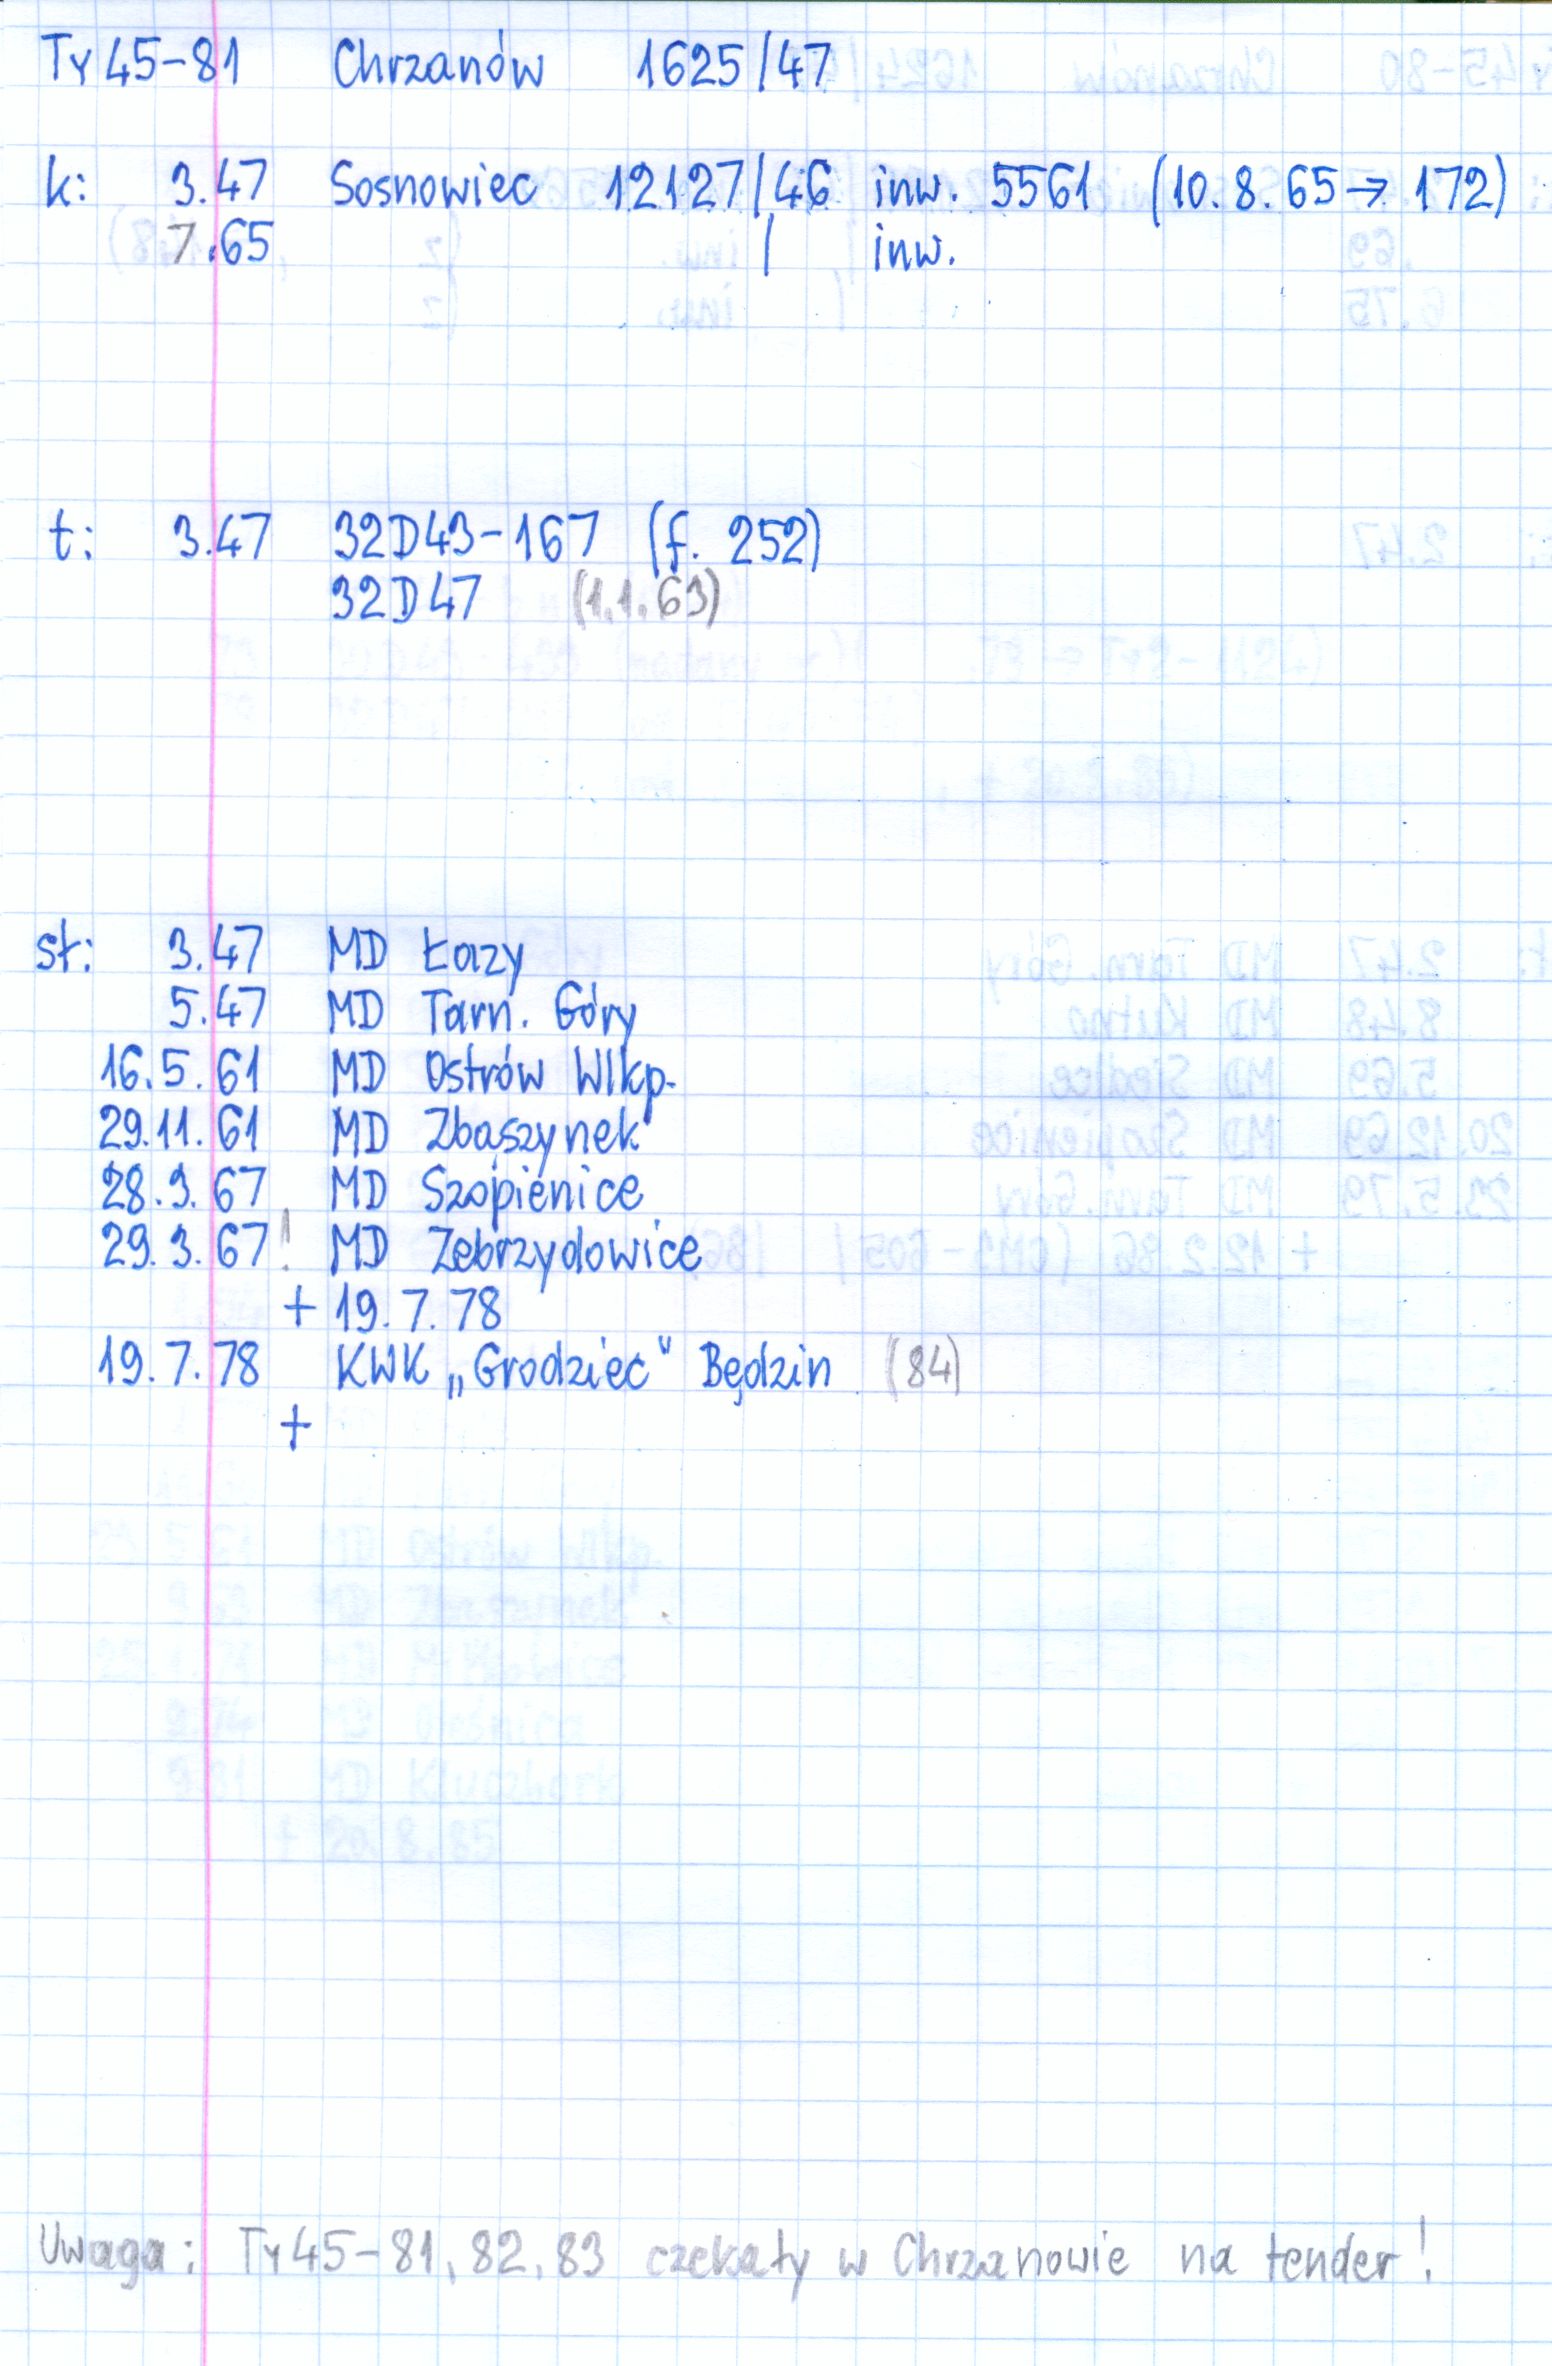 Ty45-81 Chrzanów 1625/47
k: 3.47 Sosnowiec 12127/46 inw. 5561 (10.8.65→172)
7.65 / inw.
t: 3.47 32D43-167 (f. 252)
32D47 (1.1.63)
st: 3.47 MD Łazy
5.47 MD Tarn. Góry
16.5.61 MD Ostrów Wlkp.
29.11.61 MD Zbąszynek
28.3.67 MD Szopienice
29.3.67! MD Zebrzydowice
+ 19.7.78
19.7.78 KWK „Grodziec" Będzin (84)
+
Uwaga: Ty45-81, 82, 83 czekały w Chrzanowie na tender!